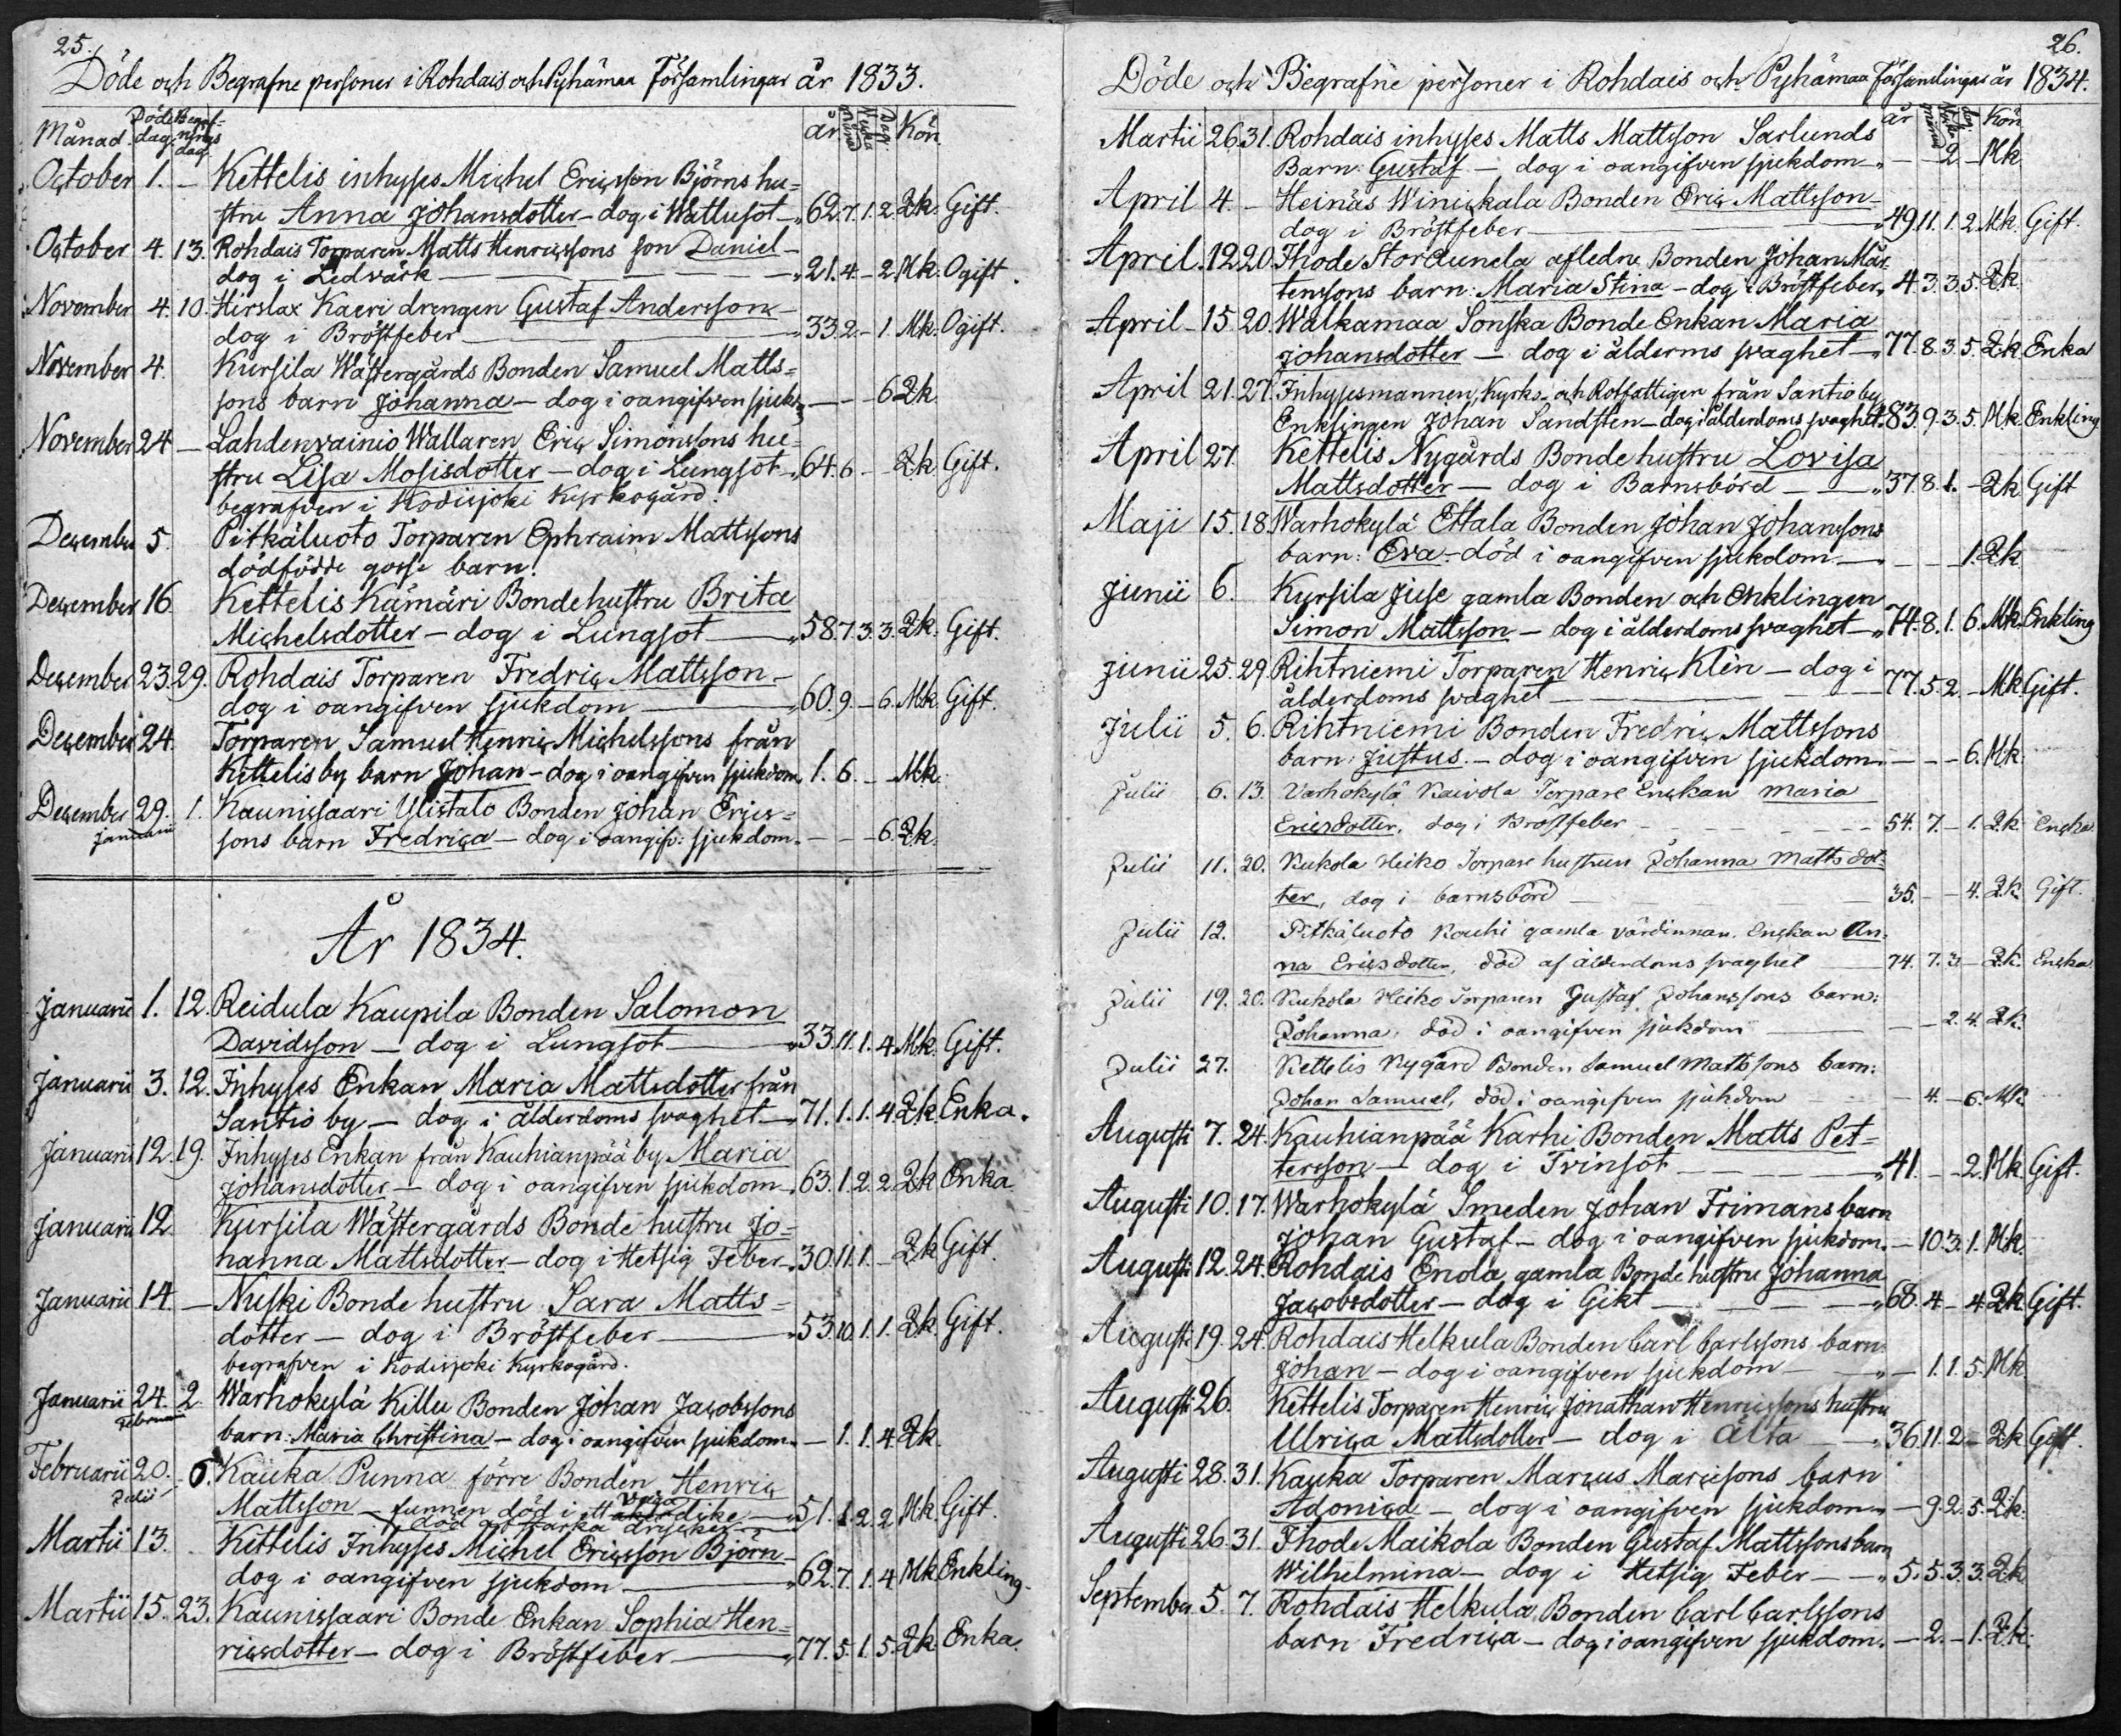 25.
Döde och Begrafne personer i Rohdais och Pyhämaa Församlingar år 1833.
Månad. Döde dag. Begraf-nings dag. år månad Vecka Dag. Kön.
October 1. – Kettelis inhyses Michel Ericsson Björns hu=
stru Anna Johansdotter – dog i Wattusot – 62. 7. 1. 2. Qk. Gift.
October 4. 13. Rohdais Torparen Matts Henricssons son Daniel –
dog i Ledvärk – 21. 4. – 2. Mk. Ogift.
November 4. 10. Hirslax Kaeri drengen Gustaf Andersson –
dog i Bröstfeber – 33. 2. – 1. Mk. Ogift.
November 4. Kursila Wästergårds Bonden Samuel Matts=
sons barn Johanna – dog i oangifven sjukd. – – – 6 Qk
November 24 – Lahdenvainio Wallaren Eric Simonssons hu=
stru Lisa Mosisdotter – dog i Lungsot – 64. 6 – Qk Gift.
begrafven i Kodisjoki Kyrkogård.
December 5. Pitkäluoto Torparen Ephraim Mattssons
dödfödde gosse barn.
December 16. Kettelis Kämäri Bondehustru Brita
Michelsdotter – dog i Lungsot – 58. 7. 3. 3. Qk. Gift.
December 23. 29. Rohdais Torparen Fredric Mattsson –
dog i oangifven sjukdom – 60. 9. – 6. Mk. Gift.
December 24. Torparen Samuel Henric Michelssons från
Kettelis by barn Johan – dog i oangifven sjukdom. 1. 6. – Mk.
December 29. 1. Kaunissaari Ylistalo Bonden Johan Erics=
Januarii sons barn Fredrica – dog i oangifv: sjukdom. – – – 6. Qk.
År 1834.
Januarii 1. 12. Reidula Kaupila Bonden Salomon
Davidsson – dog i Lungsot – 33. 11. 1. 4. Mk. Gift.
Januarii 3. 12. Inhyses Enkan Maria Mattsdotter från
Santio by – dog i ålderdoms svaghet – 71. 1. 1. 4. Qk. Enka.
Januarii 12. 19. Inhyses Enkan från Kauhianpää by Maria
Johansdotter – dog i oangifven sjukdom – 63. 1. 2. 2. Qk Enka
Januarii 12. Kursila Wästergårds Bonde hustru Jo=
hanna Mattsdotter – dog i Hetsig Feber – 30. 11. 1. – Qk Gift.
Januarii 14. – Nuski Bonde hustru Sara Matts=
dotter – dog i Bröstfeber – 53. 10. 1. 1. Qk. Gift.
begrafven i Kodisjoki Kyrkogård.
Januarii 24. 2. Warhokylä Killu Bonden Johan Jacobssons
Februarii barn: Maria Christina – dog i oangifven sjukdom. – 1. 1. 4. Qk.
Februarii 20. 6. Kauka Punna förre Bonden Henric
Julii Mattsson – funnen död i ett åker dike – 51. 1. 2. 2. Mk. Gift.
död af starka drycker
Martii 13. Kettelis Inhyses Michel Ericsson Björn –
dog i oangifven sjukdom – 62. 7. 1. 4. Mk Enkling.
Martii 15. 23. Kaunissaari Bonde Enkan Sophia Hen=
ricsdotter – dog i Bröstfeber – 77. 5. 1. 5. Qk Enka.
26.
Döde och Begrafne personer i Rohdais och Pyhämaa Församlingar år 1834.
år månad Vecka dag Kön
Martii 26. 31. Rohdais inhyses Matts Mattsson Sarlunds
Barn: Gustaf – dog i oangifven sjukdom – – 2 – Mk
April 4. – Heinäs Winickala Bonden Eric Mattsson –
dog i Bröstfeber – 49. 11. 1. 2. Mk. Gift.
April. 12. 20. Ihode Storaunela afledne Bonden Johan Mår=
tenssons barn: Maria Stina – dog i Bröstfeber, 4. 3. 3. 5. Qk.
April – 15. 20. Walkamaa Sonska Bonde Enkan Maria
Johansdotter – dog i ålderms svaghet – 77. 8. 3. 5. Qk. Enka
April 21. 27. Inhysesmannen, Kyrko- och Rotfattigen från Santio by,
Enklingen Johan Sandsten – dog i ålderdoms svaghet. 83. 9. 3. 5. Mk. Enkling
April 27. Kettelis Nygårds Bonde hustru Lovisa
Mattsdotter – dog i Barnsbörd – 37. 8. 1. – Qk Gift
Maji 15. 18. Warhokylä Ettala Bonden Johan Johanssons
barn: Eva – död i oangifven sjukdom – – – – 1. Qk
Junii 6. Kursila Juse gamla Bonden och Enklingen
Simon Mattsson – dog i ålderdoms svaghet – 74. 8. 1. 6. Mk. Enkling
Junii 25. 29. Rihtniemi Torparen Henric Klén – dog i
ålderdoms svaghet – 77. 5. 2. – Mk. Gift.
Julii 5. 6. Rihtniemi Bonden Fredric Mattssons
barn: Justus. – dog i oangifven sjukdom. – – – 6. Mk.
Julii 6. 13. Varhokylä Kaivola Torpare Enckan Maria
Ericsdotter, dog i Bröstfeber – 54. 7. – 1. Qk. Encka.
Julii 11. 20. Kukola Heiko Torpare hustrun Johanna Mattsdot=
ter, dog i barnsbörd – 35. – – 4. Qk. Gift.
Julii 12. Pitkäluoto Kouhi gamla värdinnan. Enckan An=
na Ericsdotter, död af ålderdoms svaghet 74. 7. 3. – Qk. Encka.
Julii 19. 20. Kukola Heiko Torparen Gustaf Johanssons barn:
Johanna, död i oangifven sjukdom – – 2. 4. Qk.
Julii 27. Kettelis Nygård Bonden Samuel Mattssons barn:
Johan Samuel, död i oangifven sjukdom – 4. – 6. Mk
Augusti 7. 24. Kauhianpää Karhi Bonden Matts Pet=
tersson – dog i Tvinsot – 41. – – 2. Mk. Gift.
Augusti 10. 17. Warhokylä Smeden Johan Frimans barn
Johan Gustaf – dog i oangifven sjukdom. – 10. 3. 1. Mk.
Augusti 12. 24. Rohdais Enola gamla Bonde hustru Johanna
Jacobsdotter – dog i Gikt – 68. 4 – 4 Qk Gift.
Augusti 19. 24. Rohdais Helkula Bonden Carl Carlssons barn:
Johan – dog i oangifven sjukdom – – 1. 1. 5. Mk
Augusti 26. Kettelis Torparen Henric Jonathan Henricssons hustru
Ulrica Mattsdotter – dog i Älta – 36. 11. 2. – Qk Gift.
Augusti 28. 31. Kauka Torparen Marcus Marcusons barn
Adonica – dog i oangifven sjukdom – 9. 2. 5. Qk.
Augusti 26. 31. Ihode Maikola Bonden Gustaf Mattssons barn
Wilhelmina – dog i Hetsig Feber – 5. 5. 3. 3. Qk
September 5. 7. Rohdais Helkula Bonden Carl Carlssons
barn Fredrica – dog i oangifven sjukdom. – 2. – 1. Qk.